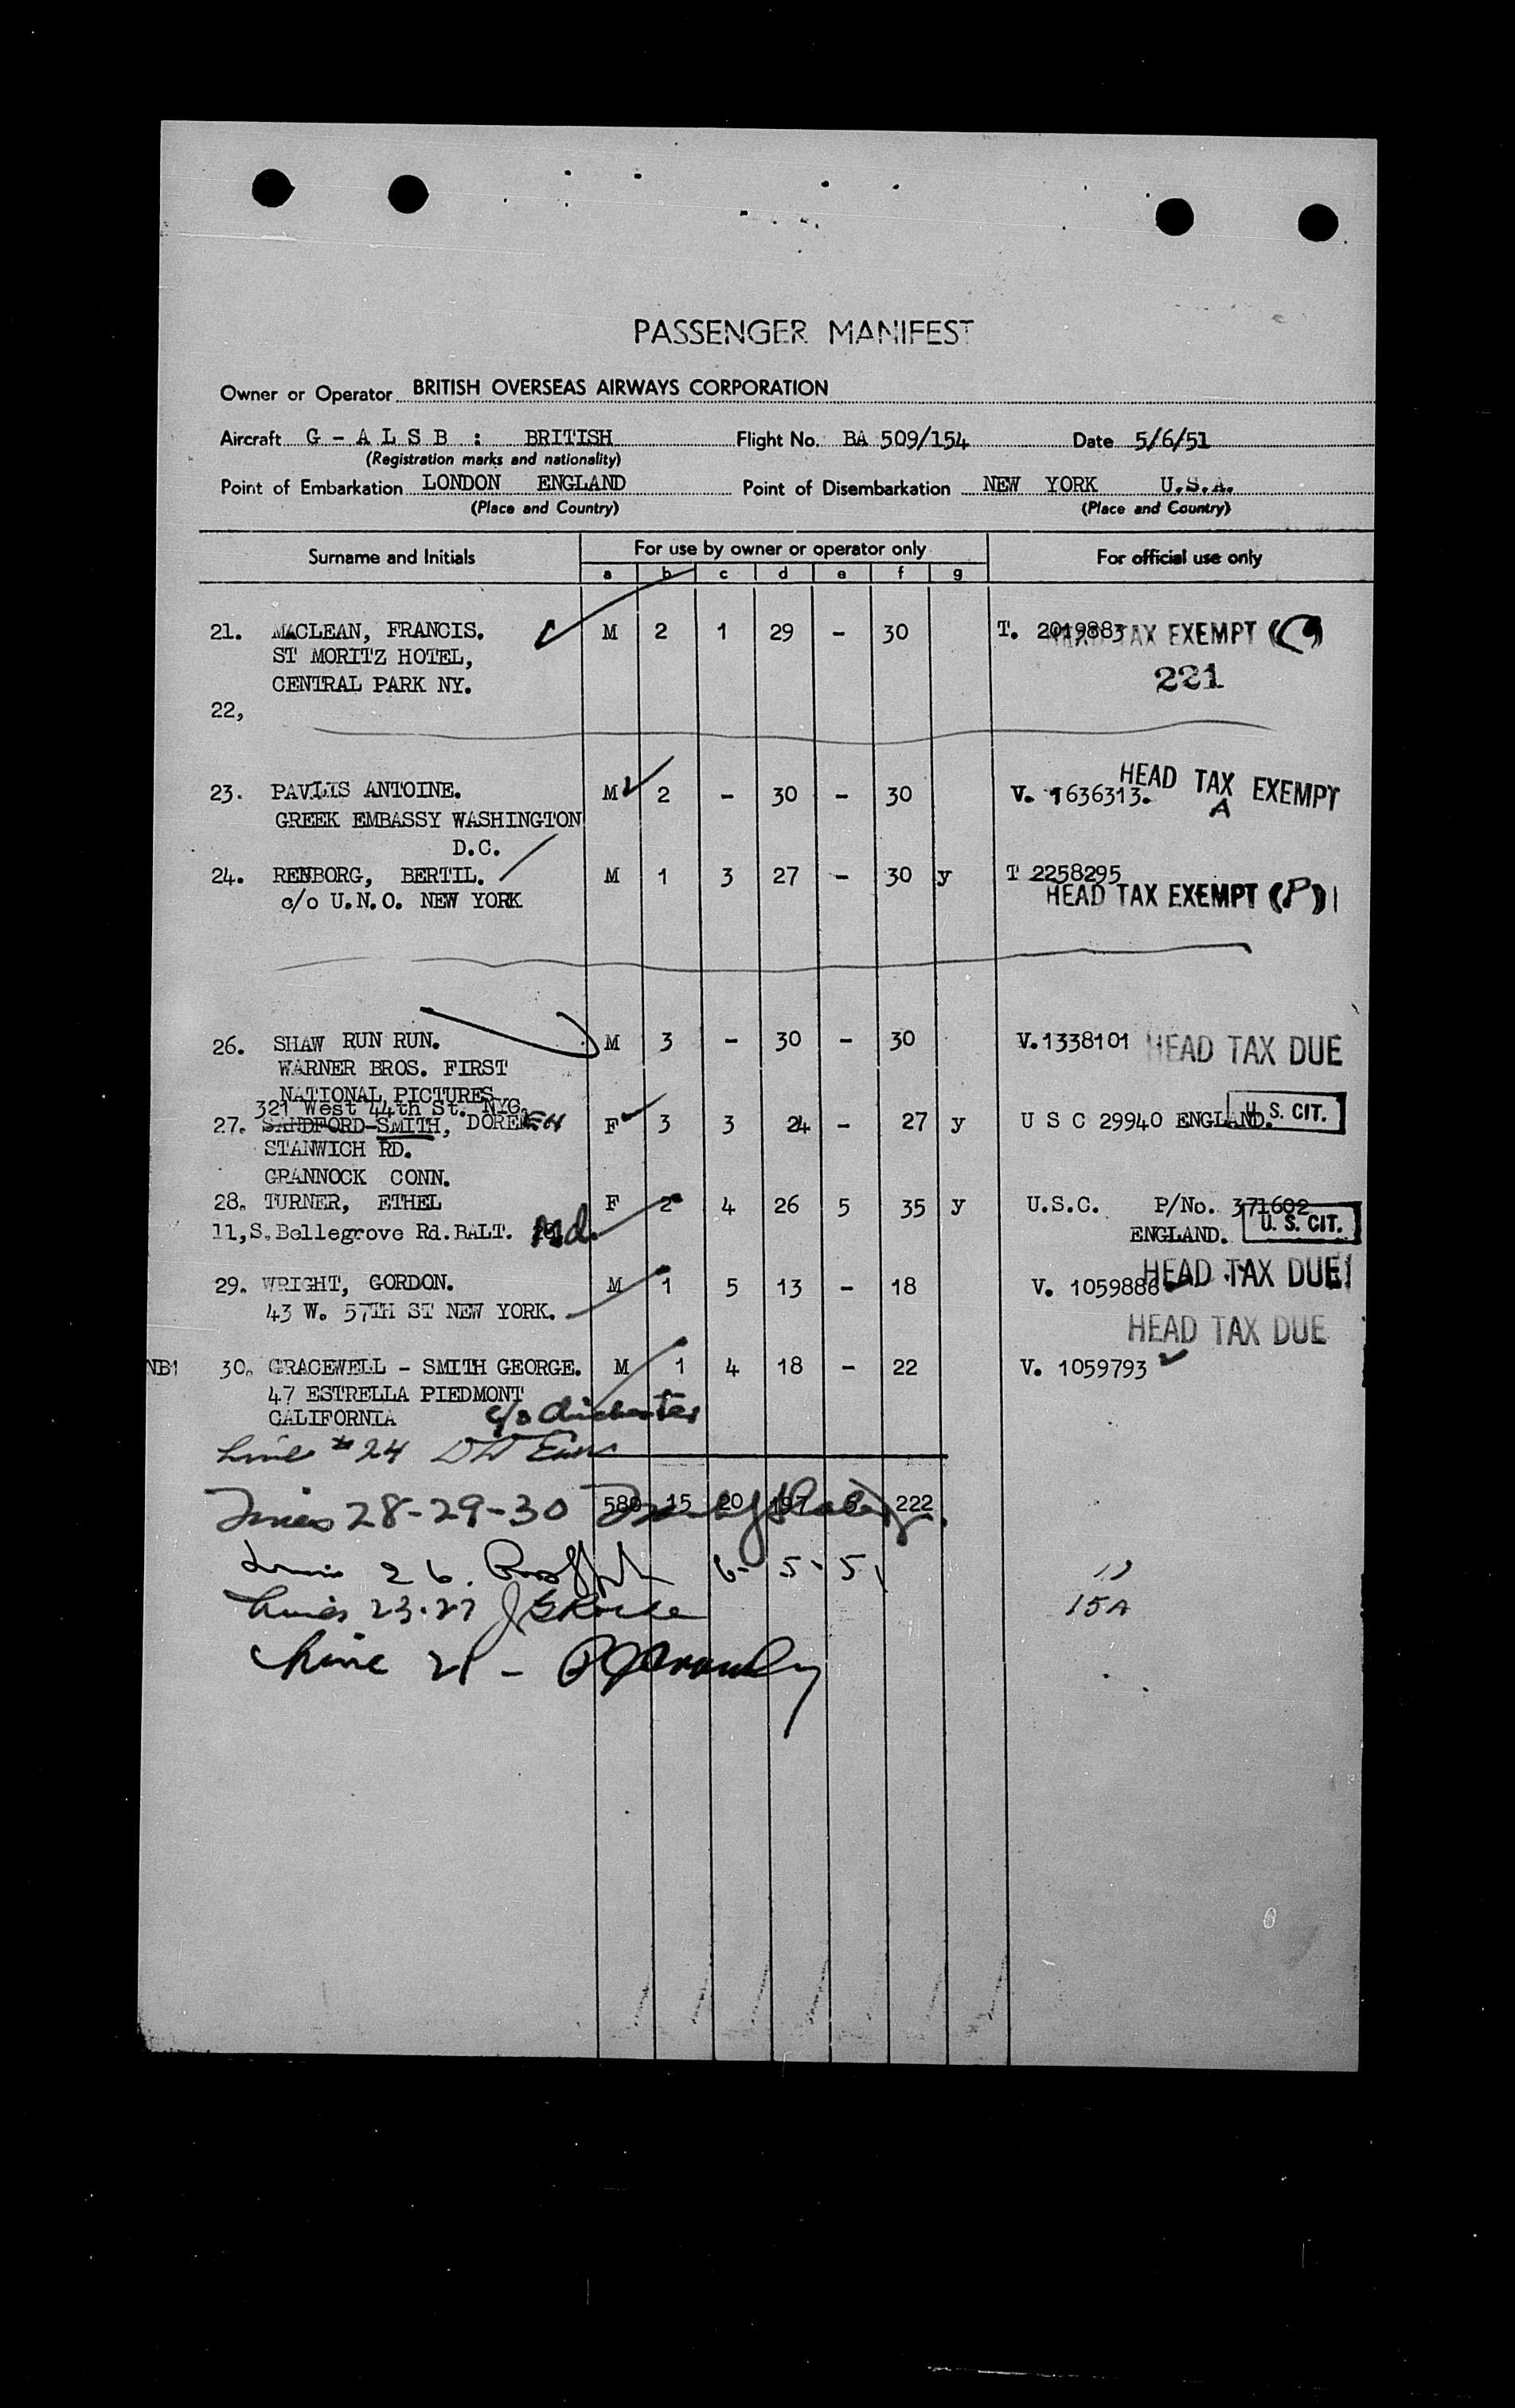 PASSENGER MANIFEST
Owner or Operator BRITISH OVERSEAS AIRWAYS CORPORATION
Aircraft G - A L S B : BRITISH Flight No. BA 509/154 Date 5/6/51
(Registration marks and nationality)
Point of Embarkation LONDON ENGLAND Point of Disembarkation NEW YORK U.S.A.
(Place and Country) (Place and Country)
Surname and Initials For use by owner or operator only For official use only
a b c d e f g
21. MACLEAN, FRANCIS. M 2 1 29 - 30 T. 2019883 HEAD TAX EXEMPT
ST MORITZ HOTEL,
CENTRAL PARK NY. 221
22,
23. PAVLIS ANTOINE. M 2 - 30 - 30 V. 1636313. HEAD TAX EXEMPT
A
GREEK EMBASSY WASHINGTON
D.C.
24. RENBORG, BERTIL. M 1 3 27 - 30 y T 2258295
c/o U.N.O. NEW YORK HEAD TAX EXEMPT (P)
26. SHAW RUN RUN. M 3 - 30 - 30 V.1338101 HEAD TAX DUE
WARNER BROS. FIRST
NATIONAL PICTURES
321 West 44th St. NYC
27. SANDFORD-SMITH, DOREEN F 3 3 24 - 27 y U S C 29940 ENGLAND. U. S. CIT.
STANWICH RD.
GRANNOCK CONN.
28. TURNER, ETHEL F 2 4 26 5 35 y U.S.C. P/No. 371602
11,S.Bellegrove Rd.BALT. Md. ENGLAND. U. S. CIT.
29. WRIGHT, GORDON. M 1 5 13 - 18 V. 1059886 HEAD TAX DUE
43 W. 57TH ST NEW YORK.
HEAD TAX DUE
NB1 30. GRACEWELL - SMITH GEORGE. M 1 4 18 - 22 V. 1059793
47 ESTRELLA PIEDMONT
CALIFORNIA c/o Chichester
Line #24
Lines 28-29-30 580 15 20 197 5 222
Line 26. 6-5-51
Lines 23-27
15A
Line 21 -